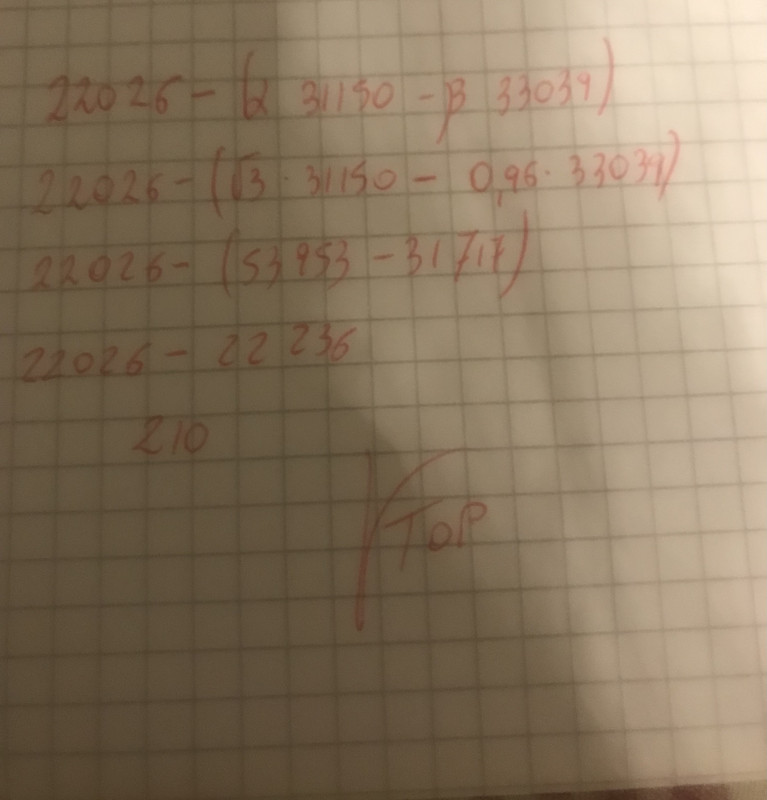 22026 - (α 31150 - β 33039)
22026 - (√3 · 31150 - 0,96 · 33039)
22026 - (53953 - 31717)
22026 - 22236
210
TOP